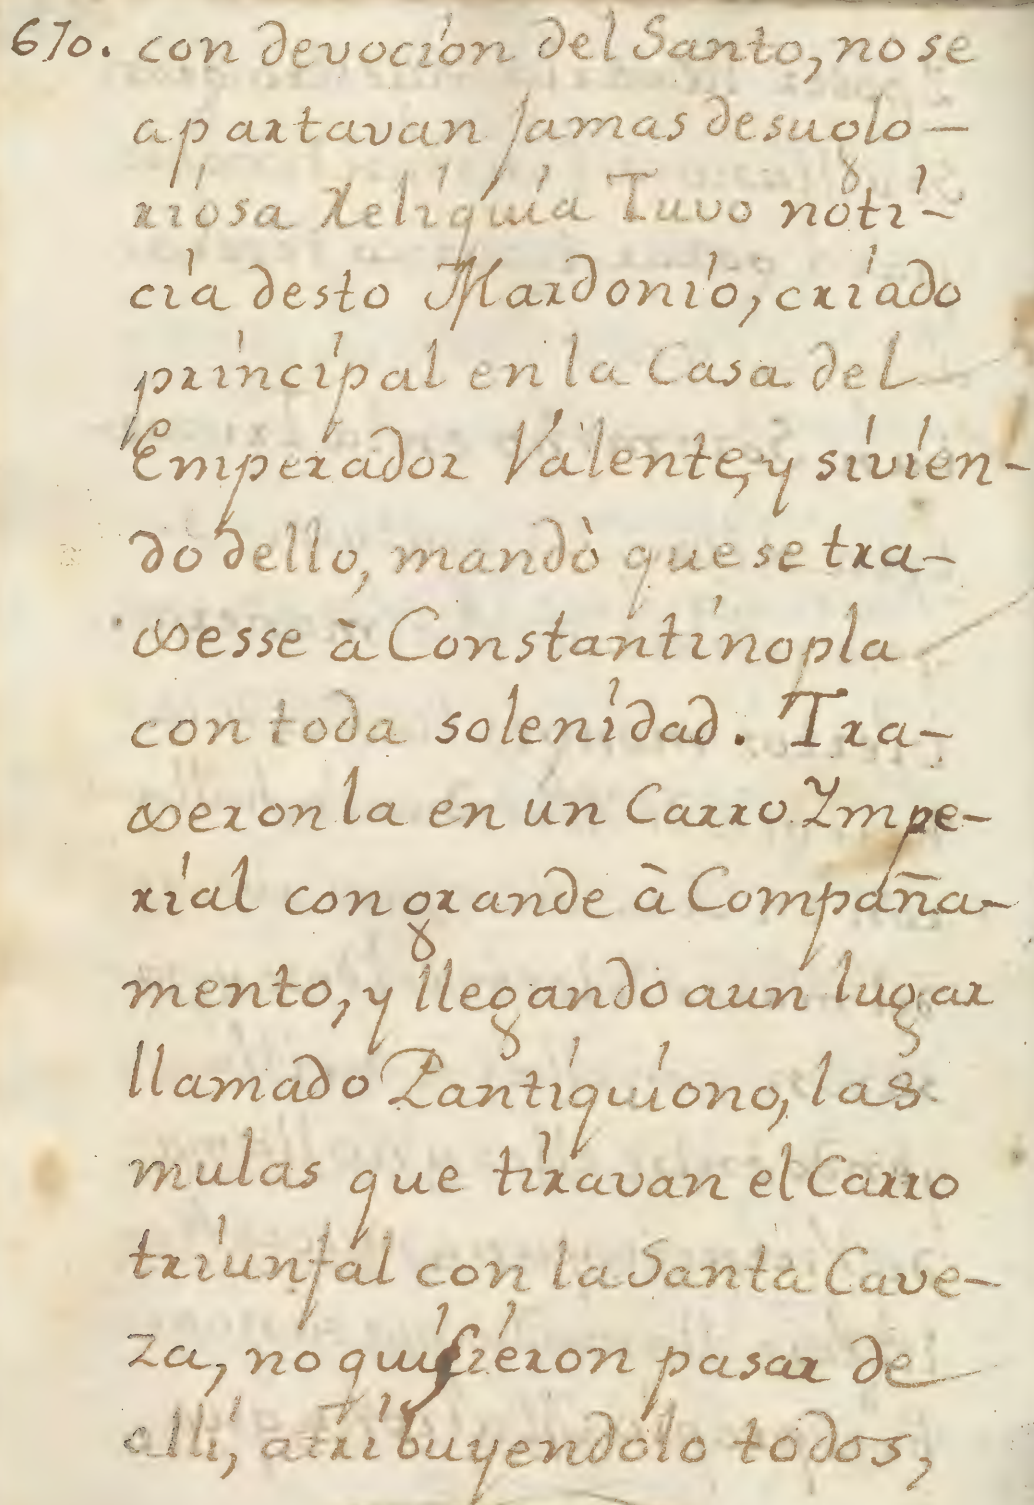 670. con devocion del Santo, no se
apartavan jamas de su glo-
riosa Reliquia Tuvo noti-
cia desto Mardonio, criado
principal en la Casa del
Emperador Valente, y sivien-
do dello, mandò que se tra-
xesse à Constantinopla
con toda solenidad. Tra-
xeronla en un Carro Impe-
rial con grande à Compaña-
mento, y llegando a un lugar
llamado Pantiquiono, las
mulas que tiravan el Carro
triunfal con la Santa Cave-
za, no quisieron pasar de
elli, atribuyendolo todos,